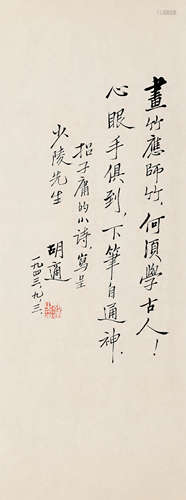 畫竹應師竹，何須學古人！
心眼手俱到，下筆自通神．
招子庸的小詩，寫呈
少陵先生
胡適
一九四三，九，三．